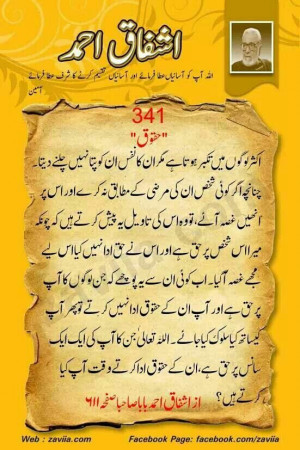 اشفاق احمد
اللہ آپ کو آسانیاں عطا فرمائے اور آسانیاں تقسیم کرنے کا شرف عطا فرمائے
آمین
341
"حقوق"
اکثر لوگوں میں تکبر ہوتا ہے مگر ان کا نفس ان کو پتا نہیں چلنے دیتا۔
چنانچہ اگر کوئی شخص ان کی مرضی کے مطابق نہ کرے اور اس پر
انھیں غصہ آئے، تو وہ اس کی تاویل یہ پیش کرتے ہیں کہ چونکہ
میرا اس شخص پر حق ہے اور اس نے حق ادا نہیں کیا اس لیے
مجھے غصہ آگیا۔ اب کوئی ان سے یہ پوچھے کہ جن لوگوں کا آپ
پر حق ہے اور آپ ان کے حقوق ادا نہیں کرتے تو پھر آپ
کیساتھ کیا سلوک کیا جائے۔ اللہ تعالیٰ جن کا آپ کی ایک ایک
سانس پر حق ہے، ان کے حقوق ادا کرتے وقت آپ کیا
کرتے ہیں؟
از اشفاق احمد بابا صاحبا صفحہ ۶۱۱
Web : zaviia.com Facebook Page: facebook.com/zaviia